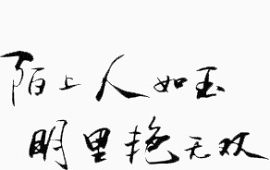 陌上人如玉
明里艳无双